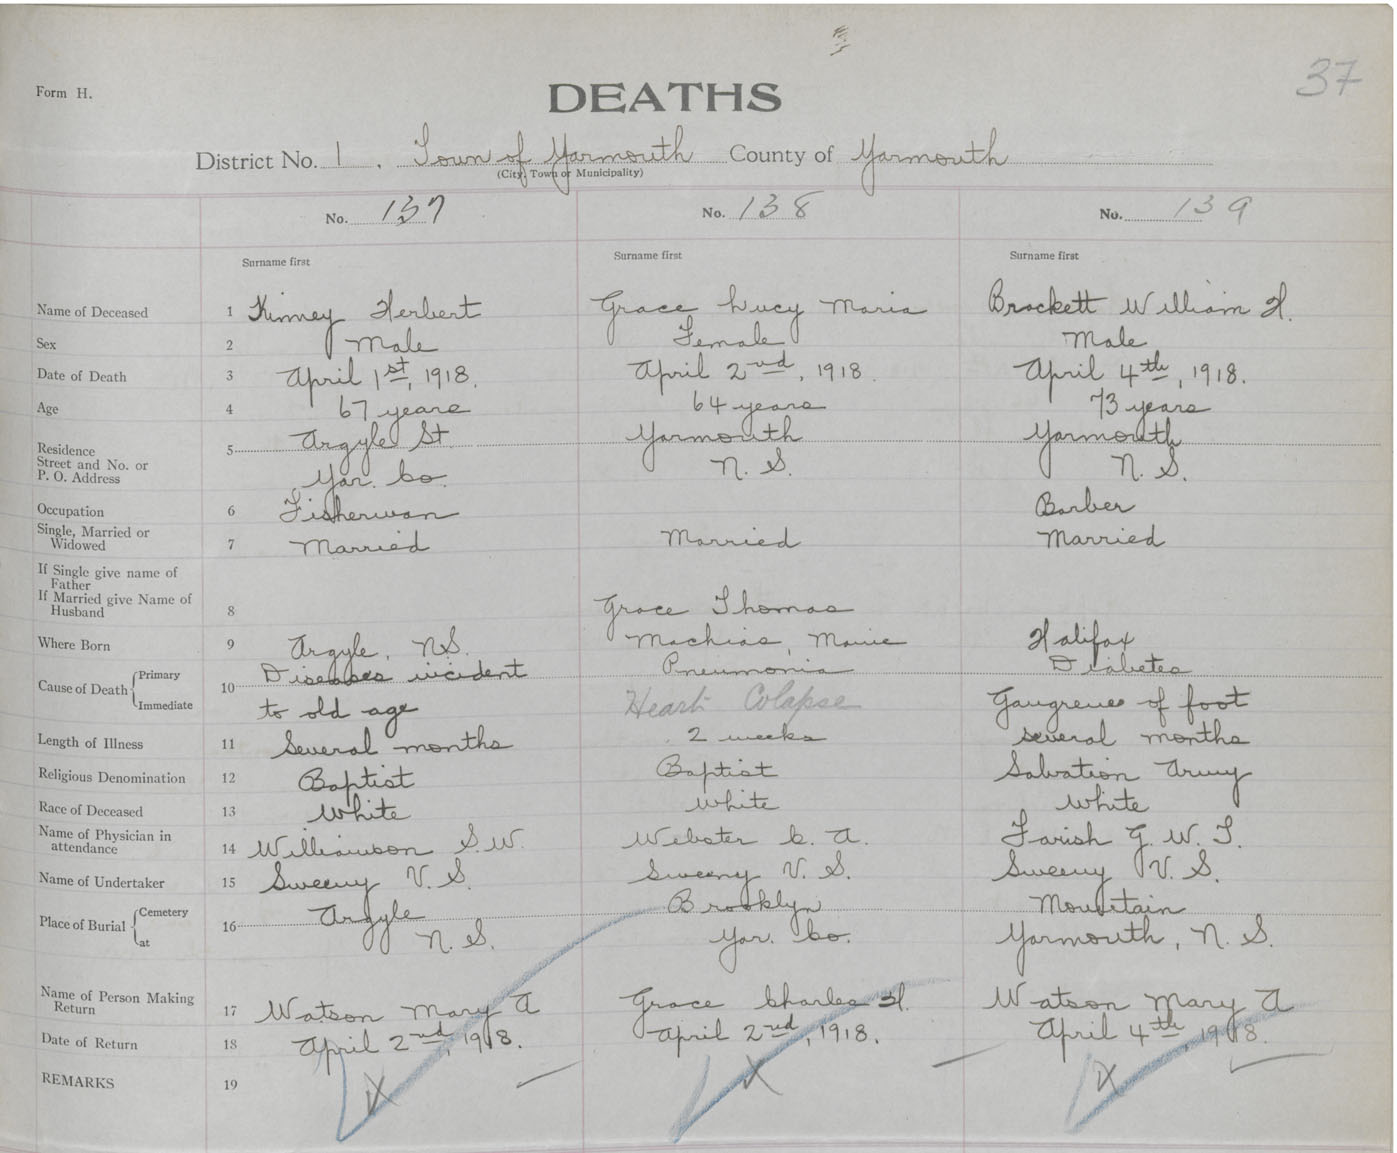 37
Form H.
DEATHS
District No. 1. Town of Yarmouth County of Yarmouth
(City, Town or Municipality)
No. 137 No. 138 No. 139
Surname first Surname first Surname first
Name of Deceased 1 Kinney Herbert Grace Lucy Maria Brackett William H.
Sex 2 Male Female Male
Date of Death 3 April 1st, 1918. April 2nd, 1918. April 4th, 1918.
Age 4 67 years 64 years 73 years
Residence 5 Argyle St Yarmouth Yarmouth
Street and No. or
P. O. Address Yar. Co. N. S. N. S.
Occupation 6 Fisherman Barber
Single, Married or
Widowed 7 Married Married Married
If Single give name of
Father
If Married give Name of
Husband 8 Grace Thomas
Where Born 9 Argyle, N.S. Machias, Maine Halifax
Cause of Death Primary 10 Diseases incident Pneumonia Diabetes
Immediate to old age Heart Colapse Gangrene of foot
Length of Illness 11 Several months 2 weeks several months
Religious Denomination 12 Baptist Baptist Salvation Army
Race of Deceased 13 White White White
Name of Physician in
attendance 14 Williamson S.W. Webster C. A. Farish G. W. T.
Name of Undertaker 15 Sweeny V. S. Sweeny V. S. Sweeny V. S.
Place of Burial Cemetery 16 Argyle Brooklyn Mountain
at N. S. Yar. Co. Yarmouth, N. S.
Name of Person Making
Return 17 Watson Mary A Grace Charles H. Watson Mary A
Date of Return 18 April 2nd, 1918. April 2nd, 1918. April 4th, 1918.
REMARKS 19